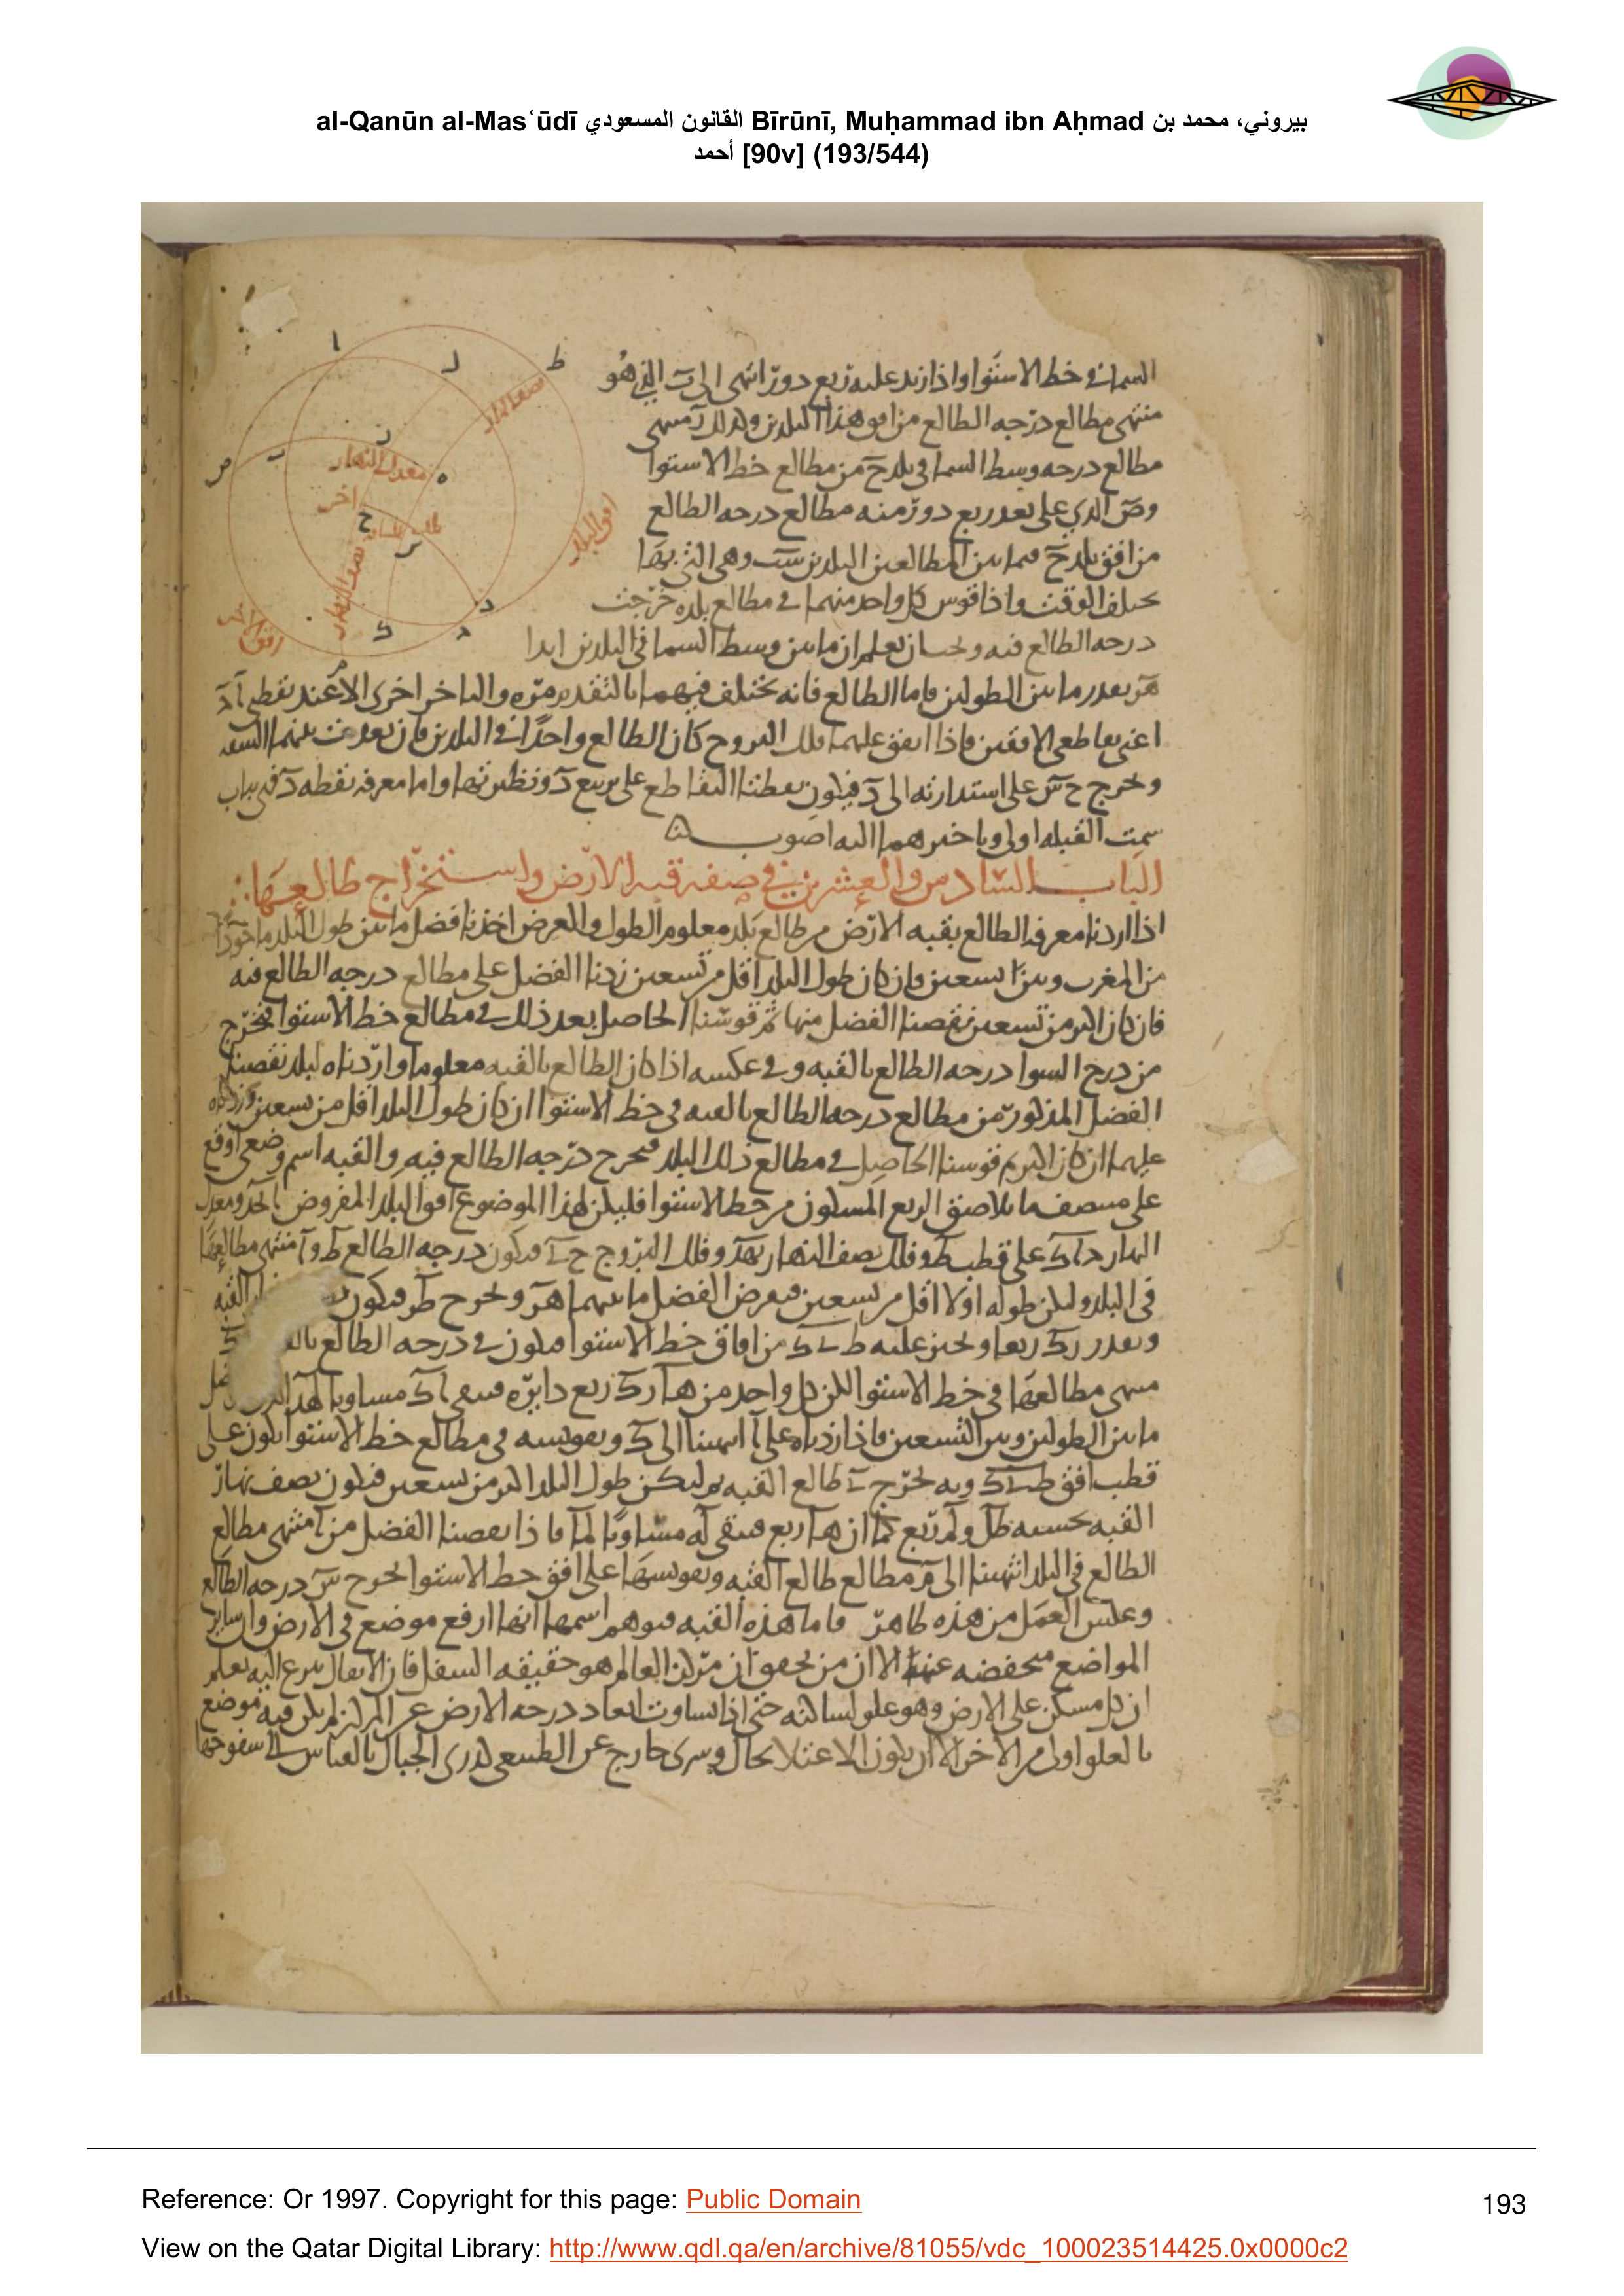 al-Qanūn al-Masʿūdī القانون المسعودي Bīrūnī, Muḥammad ibn Aḥmad بيروني، محمد بن
أحمد [90v] (193/544)
السما في خط الاستوا واذا زيد عليه ربع دور انتهى الى ب الذي هو
منتهى مطالع درجه الطالع من افق هذا البلدين ولذلك آ منتهى
مطالع درجه وسط السما في بلد ح من مطالع خط الاستوا
وص الذي على بعد ربع دور منه مطالع درجه الطالع
من افق بلد ح فما بين المطالعين البلدين وهي التي بها
يختلف الوقت واذا قوس كل واحد منهما في مطالع بلده خرجت
درجه الطالع فيه ولحسان يعلم ان ما بين وسط السما في البلدين ابدا
هز بعدر ما بين الطولين فاما الطالع فانه يختلف فيهما بالتقديم مره والتاخر اخرى الا عند نقطه آ د
اعني تقاطعي الافقين فاذا اتفق عليهما فلك البروج كان الطالع واحدًا في البلدين فان بعدت بينهما السعه
ونخرج ح س على استدارته الى د فيكون نقطتا التقاطع على تربيع د ونظيرتها واما معرفه نقطه د في باب
سمت القبله اولى وتاخيرهما اليه اصوب
الباب السادس والعشرين في صفه قبه الارض واستخراج طالعها
اذا اردنا معرفه الطالع بقبه الارض من طالع بلد معلوم الطول والعرض اخذنا فضل ما بين طول البلد ماخوذا
من المغرب وبين تسعين فان كان طول البلد اقل من تسعين زدنا الفضل على مطالع درجه الطالع فيه
فان كان اكبر من تسعين نقصنا الفضل منها ثم قوسنا الحاصل بعد ذلك في مطالع خط الاستوا فخرج
من درج السوا درجه الطالع بالقبه وفي عكسه اذا كان الطالع بالقبه معلوما واردناه لبلد نقصنا
الفضل المذكور من مطالع درجه الطالع بالقبه في خط الاستوا ان كان طول البلد اقل من تسعين وزدناه
عليها ان كان اكبر ثم قوسنا الحاصل في مطالع ذلك البلد فيخرج درجه الطالع فيه والقبه اسم وضعي اوقع
على منتصف ما يلاصق الربع المسكون من خط الاستوا فليكن لهذا الموضوع افق البلد المفروض ا ومعدل
النهار على قطب ط وفلك نصف النهار وفلك البروج ح فيكون درجه الطالع ط و آ منتهى مطالعها
في البلد وليكن طوله اولا اقل من تسعين فيفرض الفضل ما بينهما هر ونخرج ط ر فيكون القبه
وبعدر رك ربعا ونجيز عليه ط ك من افاق خط الاستوا فيكون درجه الطالع
منتهى مطالعها في خط الاستوا لكن كل واحد من ه ا رك ربع دايره فيبقى اك مساويا
ما بين الطولين وبين التسعين فاذا زدناه على آ انتهينا الى ك وتقويسه في مطالع خط الاستوا يكون على
قطب افق وبه يخرج طالع القبه ثم ليكن طول البلد اكبر من تسعين فيكون نصف نهار
القبه بحسبه طل ولم ربع كما ان ه ا ربع فيبقى له مساويًا لما فاذا نقصنا الفضل من آ منتهى مطالع
الطالع في البلد انتهينا الى م مطالع طالع القبه وتقويسها على افق خط الاستوا يخرج س درجه الطالع
وعكس العمل من هذه ظاهر فاما هذه القبه فيوهم اسمها انها ارفع موضع في الارض وان ساير
المواضع منخفضه عنها الا ان من تحقق ان مركز العالم هو حقيقه السفل فان الاثقال تنزع اليه يعلم
ان كل مسكن على الارض وهو علو لساكنه حتى اذا تساوت ابعاد درجه الارض عن المركز لم يكن فيه موضع
بالعلو اولى من الاخر الا ان يكون الاعتلا بحال وشي خارج عن الطبيعي كذرى الجبال بالقياس الى سفوحها
ا
ل
ط
نصف النهار
ر
ب
ص
معدل النهار
ه
اخر
ح
س
افق البلد
نصف النهار
افق اخر
ك
د
م
Reference: Or 1997. Copyright for this page: Public Domain
193
View on the Qatar Digital Library: http://www.qdl.qa/en/archive/81055/vdc_100023514425.0x0000c2